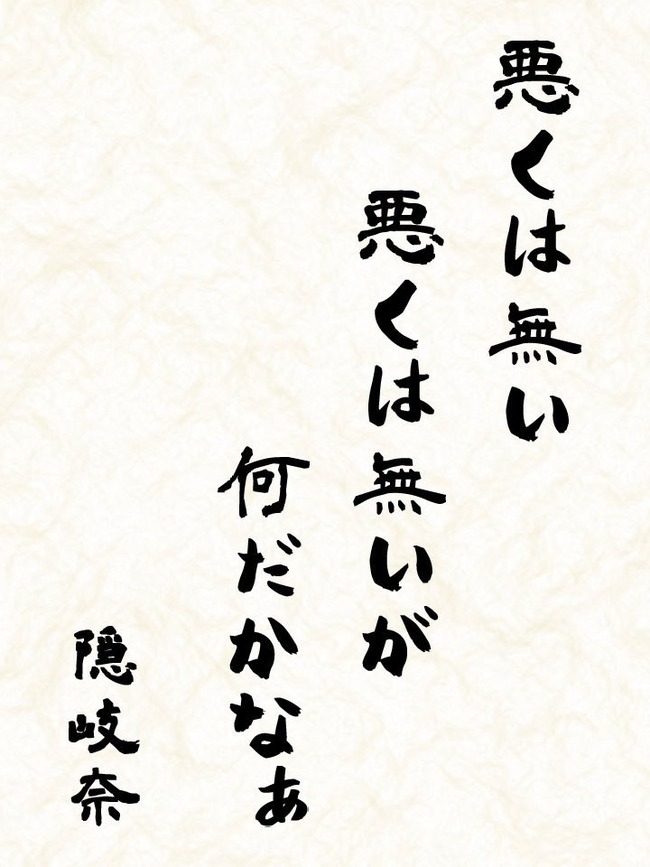 悪くは無い
悪くは無いが
何だかなぁ
隠岐奈